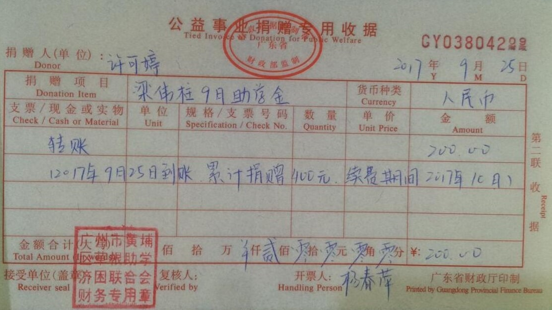 公益事业捐赠专用收据
Tied Invoice of Donation for Public Welfare
广东省
财政部监制
GY03804222
捐赠人(单位): 许可婷
Donor
2017 年 9 月 25 日
Y M D
捐赠项目 梁伟桂9月助 金 货币种类 人民币
Donation Item Currency
支票/现金或实物 单位 规格/支票号码 数量 单价 金额
Check / Cash or Material Unit Specification / Check No. Quantity Unit Price Amount
转账 200.00
(2017年9月25日到账 累计捐赠 400元. 续费期间 2017年10月)
第二联 收据
Receipt
金额合计 佰 拾 万 仟 贰 佰 零 拾 零 元 零 角 零 分 ¥: 200.00
Total Amount
广州市黄埔
助学
济困联合会
财务专用章
接受单位(盖章) 复核人: 开票人: 杨春萍 广东省财政厅印制
Receiver seal Verified by Handling Person Printed by Guangdong Provincial Finance Bureau